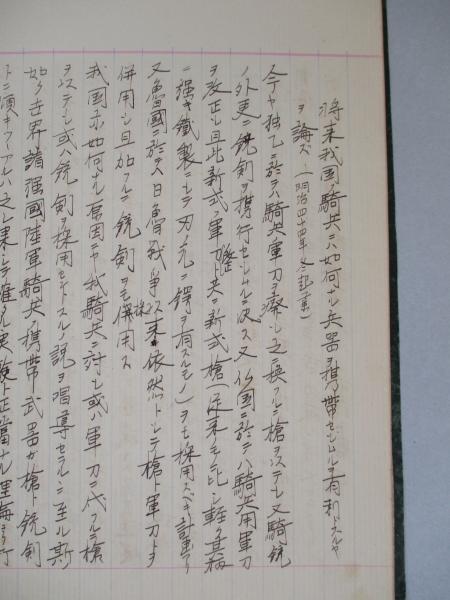 将来我国ノ騎兵ニハ如何ナル兵器ヲ携帯セシムルヲ有利トスルヤ
ヲ論ズ (明治四十四年冬起草)
今ヤ独乙ニ於テハ騎兵軍刀ヲ廃シ之ニ換フルニ槍ヲ以テシ又騎銃
ノ外更ニ銃剣ヲ携行セシムルニ決ス又仏国ニ於テハ騎兵用軍刀
ヲ改正シ且此新式軍刀ト共ニ新式槍(従来ノモノニ比シ軽ク其柄
ニ強キ鐵製ニシテ刃ノ元ニ鍔ヲ有スルモノ)ヲモ採用スベキ計画アリ
又魯國ニ於テハ日魯戦争以来依然トシテ槍ト軍刀トヲ
併用シ且加フルニ銃剣ヲモ併用ス
我国亦如何ナル原因ニヤ我騎兵ニ対シ或ハ軍刀ニ代フルニ槍
ヲ以テシ或ハ銃剣ヲ採用セントスルノ説ヲ唱導セラルニ至ル斯
如ク世界諸強國陸軍騎兵ノ携帯武器ガ槍ト銃剣
トニ傾キツツアルハ之レ果シテ確タル実験ト正当ナル理